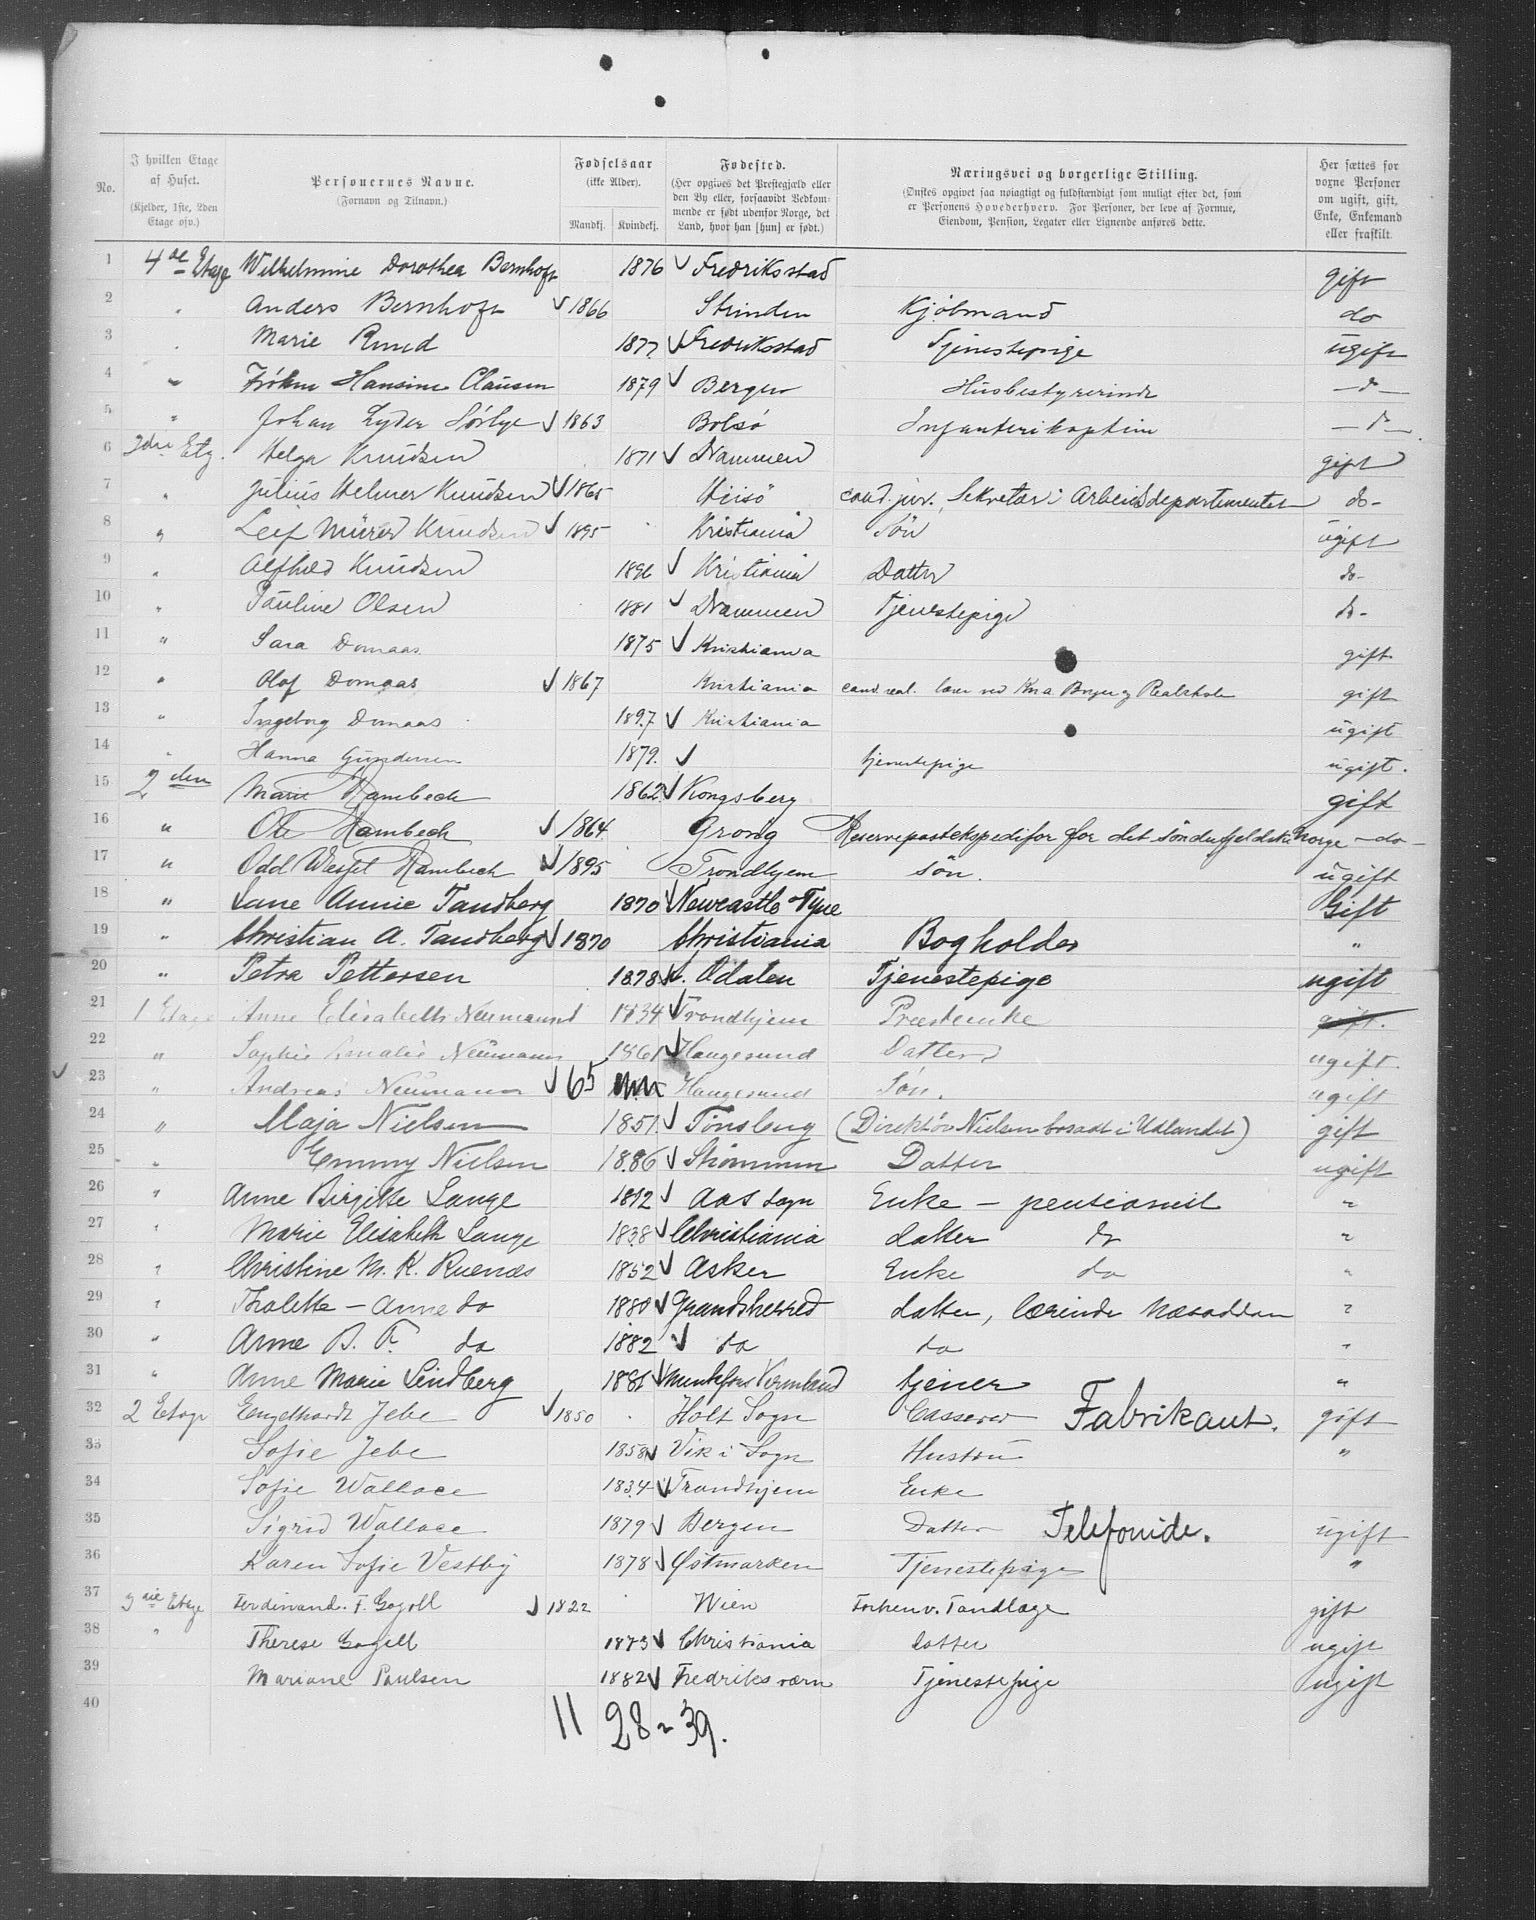 No.
I hvilken Etage af Huset. (Kjelder, 1ste, 2den Etage osv.)
Personernes Navne. (Fornavn og Tilnavn.)
Fødselsaar (ikke Alder). Mandkj. Kvindekj.
Fødested. (Her opgives det Prestegjæld eller den By eller, forsaavidt Vedkommende er født udenfor Norge, det Land, hvor han [hun] er født.)
Næringsvei og borgerlige Stilling. (Ønskes opgivet saa nøiagtigt og fuldstændigt som muligt efter det, som er Personens Hovederhverv. For Personer, der leve af Formue, Eiendom, Pension, Legater eller Lignende anføres dette.
Her sættes for voxne Personer om ugift, gift, Enke, Enkemand eller fraskilt.
1 4de Etage Wilhelmine Dorothea Bernhoft 1876 Fredriksstad gift
2 " Anders Bernhoft 1866 Strinden Kjöbmand do
3 " Marie Rund 1877 Fredriksstad Tjenestepige ugift
4 " Frøken Hansine Clausen 1879 Bergen Husbestyrerinde —d—
5 " Johan Lyder Sörlye 1863 Bolsø Infanterikaptein —d—
6 3die Etg. Helga Knudsen 1871 Drammen gift
7 " Julius Helmer Knudsen 1865 Hisö cand. jur. Sekretær i Arbeidsdepartementet do-
8 " Leif Mürer Knudsen 1895 Kristiania Sön ugift
9 " Alfhild Knudsen 1896 Kristiania Datter do-
10 " Pauline Olsen 1881 Drammen Tjenestepige do-
11 " Sara Domaas 1875 Kristiania gift
12 " Olaf Domaas 1867 Kristiania cand. real. lærer ved Kra. Borger og Realskole gift
13 " Ingeborg Domaas 1897 Kristiania ugift
14 " Hanna Gundersen 1879. tjenestepige ugift.
15 2den Marie Rambech 1862 Kongsberg gift
16 " Ole Rambech 1864 Grong Reservepostekspeditør for det søndenfjeldske Norge —do—
17 " Odd Wessel Rambech 1895 Trondhjem søn. ugift
18 " Jane Annie Tandberg 1870 Newcastle o Tyne Gift
19 " Christian A. Tandberg 1870 Christiania Bogholder "
20 " Petra Pettersen 1878 N. Odalen Tjenestepige ugift
21 1 Etage Anne Elisabeth Neumann 1834 Trondhjem Præsteenke gift.
22 " Sophie Amalie Neumann 1861 Haugesund Datter ugift.
23 " Andreas Neumann 65 Haugesund Søn. ugift
24 " Maja Nielsen 1851. Tønsberg (Direktør Nielsen bosadt i Udlandet) gift
25 " Emmy Nielsen 1886 Strømmen Datter ugift
26 " Anne Birgitte Lange 1812 Aas sogn Enke — pensionist "
27 " Marie Elisabeth Lange 1838 Christiania datter do "
28 " Christine M. K. Ruenæs 1852 Asker Enke do "
29 " Thalette — Anne do 1880 Grandsherred datter, lærende "
30 " Anne B. F. do 1882 do do "
31 " Anne Marie Lindberg 1881 Munkfors Vermland tjener "
32 2 Etage Engelhardt Jebe 1850 Holt Sogn Casserer Fabrikant. gift
33 Sofie Jebe 1858 Vik i Sogn Hustru "
34 Sofie Wallace 1834 Trondhjem Enke
35 Sigrid Wallace 1879 Bergen Datter Telefonide. ugift
36 Karen Sofie Vestby 1878 Østmarken Tjenestepige "
37 3die Etage Ferdinand. F. Gogoll 1822 Wien Forhenv. Tandlæge gift
38 " Therese Gogoll 1873 Christiania datter ugift
39 Mariane Paulsen 1882 Fredriksværn Tjenestepige ugift
40
11 28 = 39.